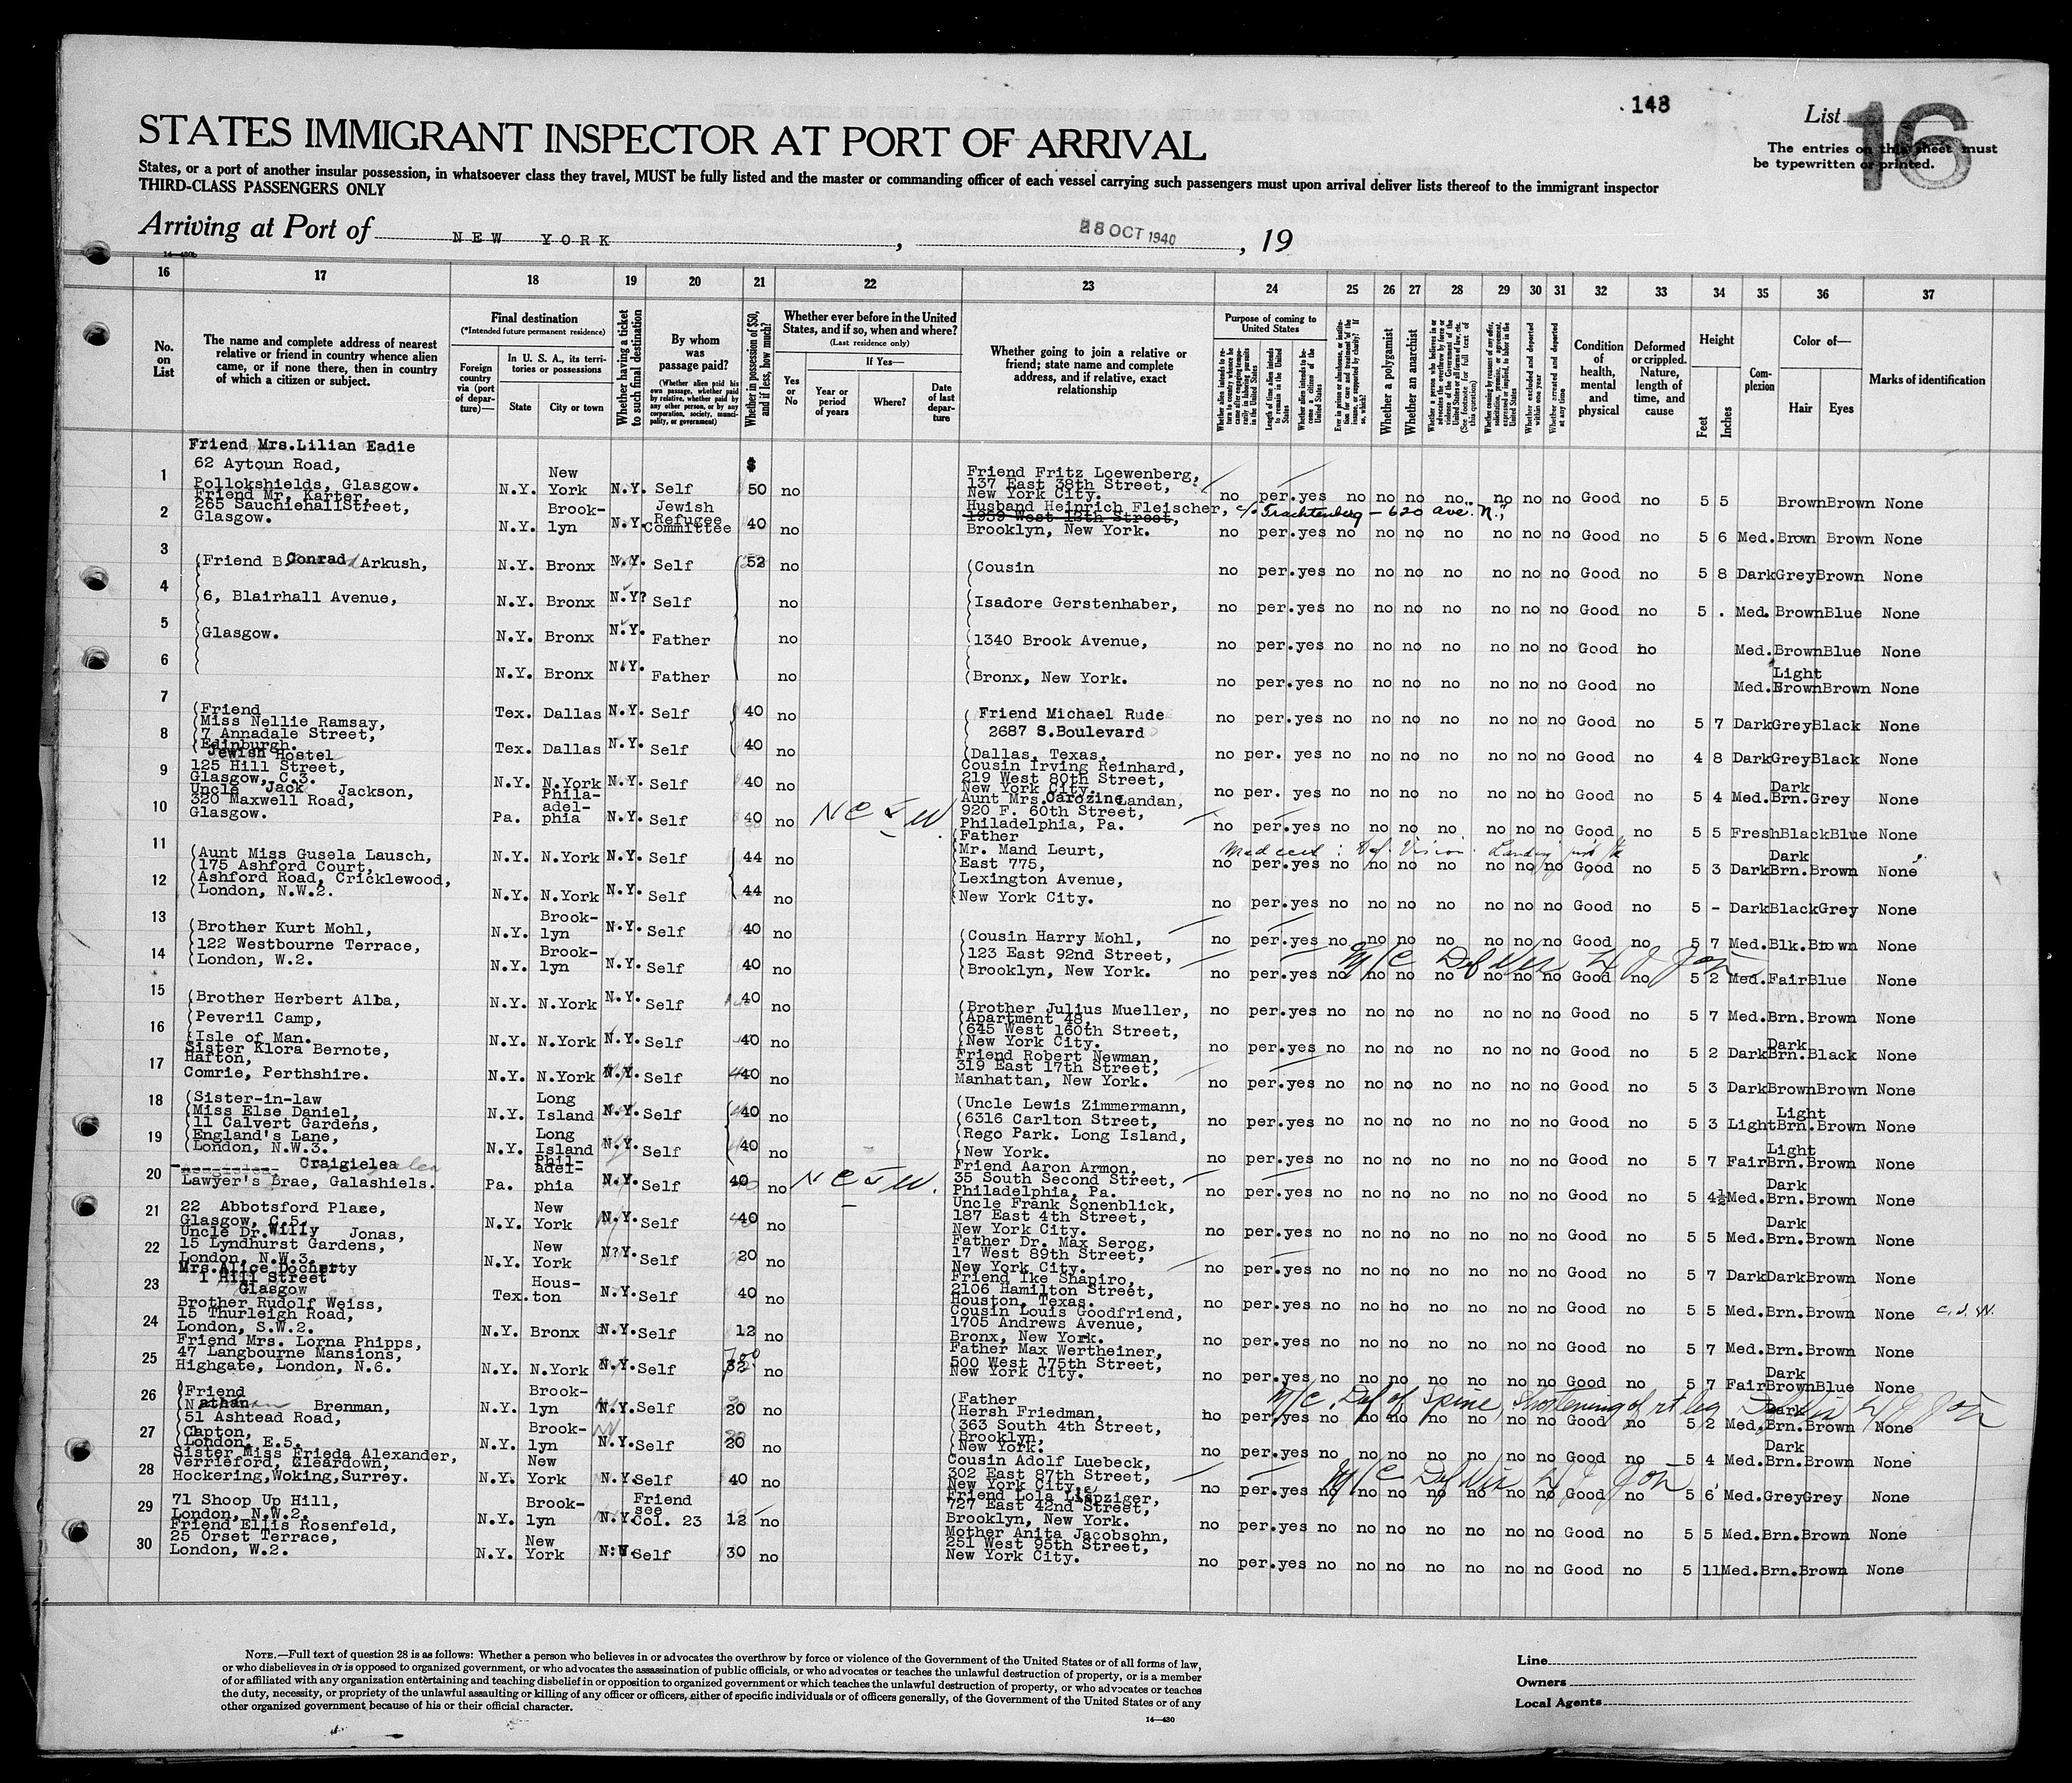 148
List 16
STATES IMMIGRANT INSPECTOR AT PORT OF ARRIVAL
The entries on this sheet must
be typewritten or printed.
States, or a port of another insular possession, in whatsoever class they travel, MUST be fully listed and the master or commanding officer of each vessel carrying such passengers must upon arrival deliver lists thereof to the immigrant inspector
THIRD-CLASS PASSENGERS ONLY
Arriving at Port of NEW YORK, 28 OCT 1940, 19
14—430b
16 17 18 19 20 21 22 23 24 25 26 27 28 29 30 31 32 33 34 35 36 37
No. on List
The name and complete address of nearest relative or friend in country whence alien came, or if none there, then in country of which a citizen or subject.
Final destination
(*Intended future permanent residence)
Foreign country via (port of departure)—
In U. S. A., its territories or possessions
State
City or town
Whether having a ticket to such final destination
By whom was passage paid?
(Whether alien paid his own passage, whether paid by relative, whether paid by any other person, or by any corporation, society, municipality, or government)
Whether in possession of $50, and if less, how much?
Whether ever before in the United States, and if so, when and where?
(Last residence only)
Yes or No
If Yes—
Year or period of years
Where?
Date of last departure
Whether going to join a relative or friend; state name and complete address, and if relative, exact relationship
Purpose of coming to United States
Whether a polygamist
Whether an anarchist
Condition of health, mental and physical
Deformed or crippled. Nature, length of time, and cause
Height
Feet
Inches
Complexion
Color of—
Hair
Eyes
Marks of identification
1 Friend Mrs.Lilian Eadie 62 Aytoun Road, Pollokshields, Glasgow. N.Y. New York N.Y. Self $ 50 no Friend Fritz Loewenberg, 137 East 38th Street, New York City. no per. yes no no no no no no no Good no 5 5 Brown Brown None
2 Friend Mr. Karter, 265 Sauchiehall Street, Glasgow. N.Y. Brook-lyn N.Y. Jewish Refugee Committee 40 no Husband Heinrich Fleischer, c/o Trachtenberg - 620 Ave. N., 1959 West 12th Street, Brooklyn, New York. no per. yes no no no no no no no Good no 5 6 Med. Brown Brown None
3 (Friend B. Conrad Arkush, N.Y. Bronx N.Y. Self 52 no (Cousin no per. yes no no no no no no no Good no 5 8 Dark Grey Brown None
4 (6, Blairhall Avenue, N.Y. Bronx N.Y? Self no (Isadore Gerstenhaber, no per. yes no no no no no no no Good no 5 . Med. Brown Blue None
5 (Glasgow. N.Y. Bronx N.Y. Father no (1340 Brook Avenue, no per. yes no no no no no no no Good no Med. Brown Blue None
6 N.Y. Bronx N.Y. Father no (Bronx, New York. no per. yes no no no no no no no Good no Med. Light Brown Brown None
7 (Friend (Miss Nellie Ramsay, Tex. Dallas N.Y. Self 40 no ( Friend Michael Rude 2687 S.Boulevard no per. yes no no no no no no no Good no 5 7 Dark Grey Black None
8 (7 Annadale Street, (Edinburgh. Tex. Dallas N.Y. Self 40 no (Dallas, Texas. no per. yes no no no no no no no Good no 4 8 Dark Grey Black None
9 Jewish Hostel 125 Hill Street, Glasgow, C.3. N.Y. N.York N.Y. Self 40 no Cousin Irving Reinhard, 219 West 80th Street, New York City. no per. yes no no no no no no no Good no 5 4 Med. Dark Brn. Grey None
10 Uncle Jack Jackson, 320 Maxwell Road, Glasgow. Pa. Phila-adel-phia N.Y. Self 40 no Aunt Mrs. Carozine Landan, 920 F. 60th Street, Philadelphia, Pa. no per. yes no no no no no no no Good no 5 5 Fresh Black Blue None
11 (Aunt Miss Gusela Lausch, (175 Ashford Court, N.Y. N.York N.Y. Self 44 no (Father (Mr. Mand Leurt, (East 775, Med cert: Def. Vision no per. yes no no no no no no no Good no 5 3 Dark Dark Brn. Brown None
12 (Ashford Road, Cricklewood, (London, N.W.2. N.Y. N.York N.Y. Self 44 no (Lexington Avenue, (New York City. no per. yes no no no no no no no Good no 5 - Dark Black Grey None
13 (Brother Kurt Mohl, N.Y. Brook-lyn N.Y. Self 40 no (Cousin Harry Mohl, no per. yes no no no no no no no Good no 5 7 Med. Blk. Brown None
14 (122 Westbourne Terrace, (London, W.2. N.Y. Brook-lyn N.Y. Self 40 no (123 East 92nd Street, (Brooklyn, New York. M/C Def Vis no per. yes no no no no no no no Good no 5 2 Med. Fair Blue None
15 (Brother Herbert Alba, (Peveril Camp, N.Y. N.York N.Y. Self 40 no (Brother Julius Mueller, (Apartment 48, no per. yes no no no no no no no Good no 5 7 Med. Brn. Brown None
16 (Isle of Man. N.Y. N.York N.Y. Self 40 no (645 West 160th Street, (New York City. no per. yes no no no no no no no Good no 5 2 Dark Dark Brn. Black None
17 Sister Klora Bernote, Harton, Comrie, Perthshire. N.Y. N.York N.Y. Self 40 no Friend Robert Newman, 319 East 17th Street, Manhattan, New York. no per. yes no no no no no no no Good no 5 3 Dark Brown Brown None
18 (Sister-in-law (Miss Else Daniel, (11 Calvert Gardens, N.Y. Long Island N.Y. Self 40 no (Uncle Lewis Zimmermann, (6316 Carlton Street, no per. yes no no no no no no no Good no 5 3 Light Light Brn. Brown None
19 (England's Lane, (London, N.W.3. N.Y. Long Island N.Y. Self 40 no (Rego Park. Long Island, (New York. no per. yes no no no no no no no Good no 5 7 Fair Light Brn. Brown None
20 Craigielea Lawyer's Brae, Galashiels. Pa. Phil-adel-phia N.Y. Self 40 no Friend Aaron Armon, 35 South Second Street, Philadelphia, Pa. no per. yes no no no no no no no Good no 5 4½ Med. Dark Brn. Brown None
21 22 Abbotsford Place, Glasgow, C.5. N.Y. New York N.Y. Self 40 no Uncle Frank Sonenblick, 187 East 4th Street, New York City. no per. yes no no no no no no no Good no 5 5 Med. Dark Brn. Brown None
22 Uncle Dr. Willy Jonas, 15 Lyndhurst Gardens, London, N.W.3. N.Y. New York N?Y. Self 20 no Father Dr. Max Serog, 17 West 89th Street, New York City. no per. yes no no no no no no no Good no 5 7 Dark Dark Brown None
23 Mrs.Alice Docherty 1 Hill Street Glasgow Tex. Hous-ton N.Y. Self 40 no Friend Ike Shapiro, 2106 Hamilton Street, Houston, Texas. no per. yes no no no no no no no Good no 5 5 Med. Brn. Brown None
24 Brother Rudolf Weiss, 15 Thurleigh Road, London, S.W.2. N.Y. Bronx N.Y. Self 12 no Cousin Louis Goodfriend, 1705 Andrews Avenue, Bronx, New York. no per. yes no no no no no no no Good no 5 7 Med. Brn. Brown None
25 Friend Mrs. Lorna Phipps, 47 Langbourne Mansions, Highgate, London, N.6. N.Y. N.York N.Y. Self 32 no Father Max Wertheiner, 500 West 175th Street, New York City. no per. yes no no no no no no no Good no 5 7 Fair Dark Brown Blue None
26 (Friend (Nathan Brenman, (51 Ashtead Road, N.Y. Brook-lyn N.Y. Self 20 no (Father (Hersh Friedman, (363 South 4th Street, M/C Def of Spine, Shortening of rt leg no per. yes no no no no no no no Good no 5 2 Med. Dark Brn. Brown None
27 (Clapton, (London, E.5. N.Y. Brook-lyn N.Y. Self 20 no (Brooklyn, (New York. no per. yes no no no no no no no Good no 5 4 Med. Dark Brn. Brown None
28 Sister Miss Frieda Alexander, Verrieford, Cleardown, Hockering, Woking, Surrey. N.Y. New York N.Y. Self 40 no Cousin Adolf Luebeck, 302 East 87th Street, New York City. M/C Def Vis no per. yes no no no no no no no Good no 5 6 Med. Grey Grey None
29 71 Shoop Up Hill, London, N.W.2. N.Y. Brook-lyn N.Y. Friend see Col. 23 12 no Friend Lola Liepziger, 727 East 42nd Street, Brooklyn, New York. no per. yes no no no no no no no Good no 5 5 Med. Brn. Brown None
30 Friend Ellis Rosenfeld, 25 Orset Terrace, London, W.2. N.Y. New York N.Y. Self 30 no Mother Anita Jacobsohn, 251 West 95th Street, New York City. no per. yes no no no no no no no Good no 5 11 Med. Brn. Brown None
NOTE.—Full text of question 28 is as follows: Whether a person who believes in or advocates the overthrow by force or violence of the Government of the United States or of all forms of law,
or who disbelieves in or is opposed to organized government, or who advocates the assassination of public officials, or who advocates or teaches the unlawful destruction of property, or is a member
of or affiliated with any organization entertaining and teaching disbelief in or opposition to organized government or which teaches the unlawful destruction of property, or who advocates or teaches
the duty, necessity, or propriety of the unlawful assaulting or killing of any officer or officers, either of specific individuals or of officers generally, of the Government of the United States or of any
other organized government because of his or their official character.
14—430
Line
Owners
Local Agents